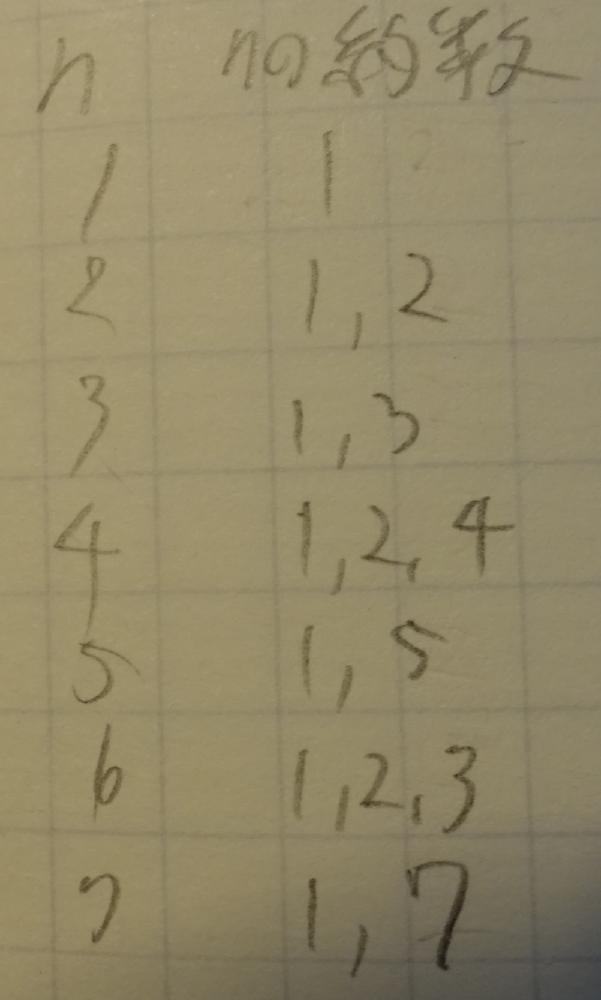 n nの約数
1 1
2 1, 2
3 1, 3
4 1, 2, 4
5 1, 5
6 1, 2, 3
7 1, 7